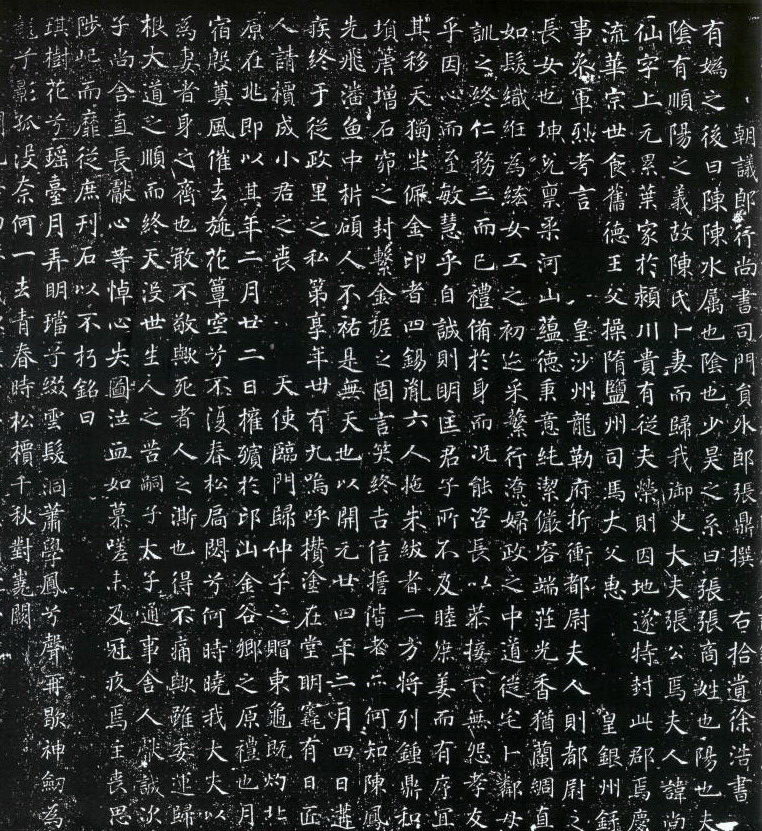 朝議郎行尚書司門員外郎張鼎撰 右拾遺徐浩書
有媯之後曰陳陳水属也陰也少昊之系曰張張商姓也陽也夫
陰有順陽之義故陳氏卜妻而歸我御史大夫張公焉夫人諱尚
仙字上元累葉家於潁川貴有從夫榮則因地遂特封此郡焉慶
流華宗世食舊德王父操隋鹽州司馬大父惠 皇銀州録
事叅軍烈考言 皇沙州龍勒府折衝都尉夫人則都尉之
長女也坤元稟柔河山藴德秉意純潔儼容端莊光香猶蘭綢直
如髮織絍為絃女工之初迄采蘩行潦婦政之中道從宅卜鄰母
訓之終仁務三而已禮備於身而况能咨長以恭接下無怨孝友
乎因心而至敏慧乎自誠則明匡君子所不及睦娣姜而有序宜
其移天獨坐佩金印者四錫胤六人拖朱紱者二方將列鍾鼎和
塤箎增石窌之封繫金柅之固言笑終吉信擔偕老亦何知陳鳳
先飛潘魚中析碩人不祐是無天也以開元廿四年二月四日遘
疾終于從政里之私第享年卅有九嗚呼攢塗在堂明竁有日臣
人請櫝成小君之喪 天使臨門歸仲子之賵東龜既灼北
原在兆即以其年二月廿二日擁殯於邙山金谷鄉之原禮也月
宿殷奠風催去旐花簟空兮不復春松扃閟兮何時曉我大夫以
為妻者身之齊也敢不敬歟死者人之澌也得不痛歟雖委運歸
根大道之順而終天没世生人之苦嗣子太子通事舍人獻誠次
子尚舍直長獻心等悼心失圖泣血如慕嗟未及冠疚焉主喪思
陟屺而靡從庶刊石以不朽銘曰
琪樹花兮瑶臺月弄明璫兮綴雲髮洞蕭學鳳兮聲再歇神劒為
龍兮影孤没奈何一去青春時松檟千秋對嵩闕